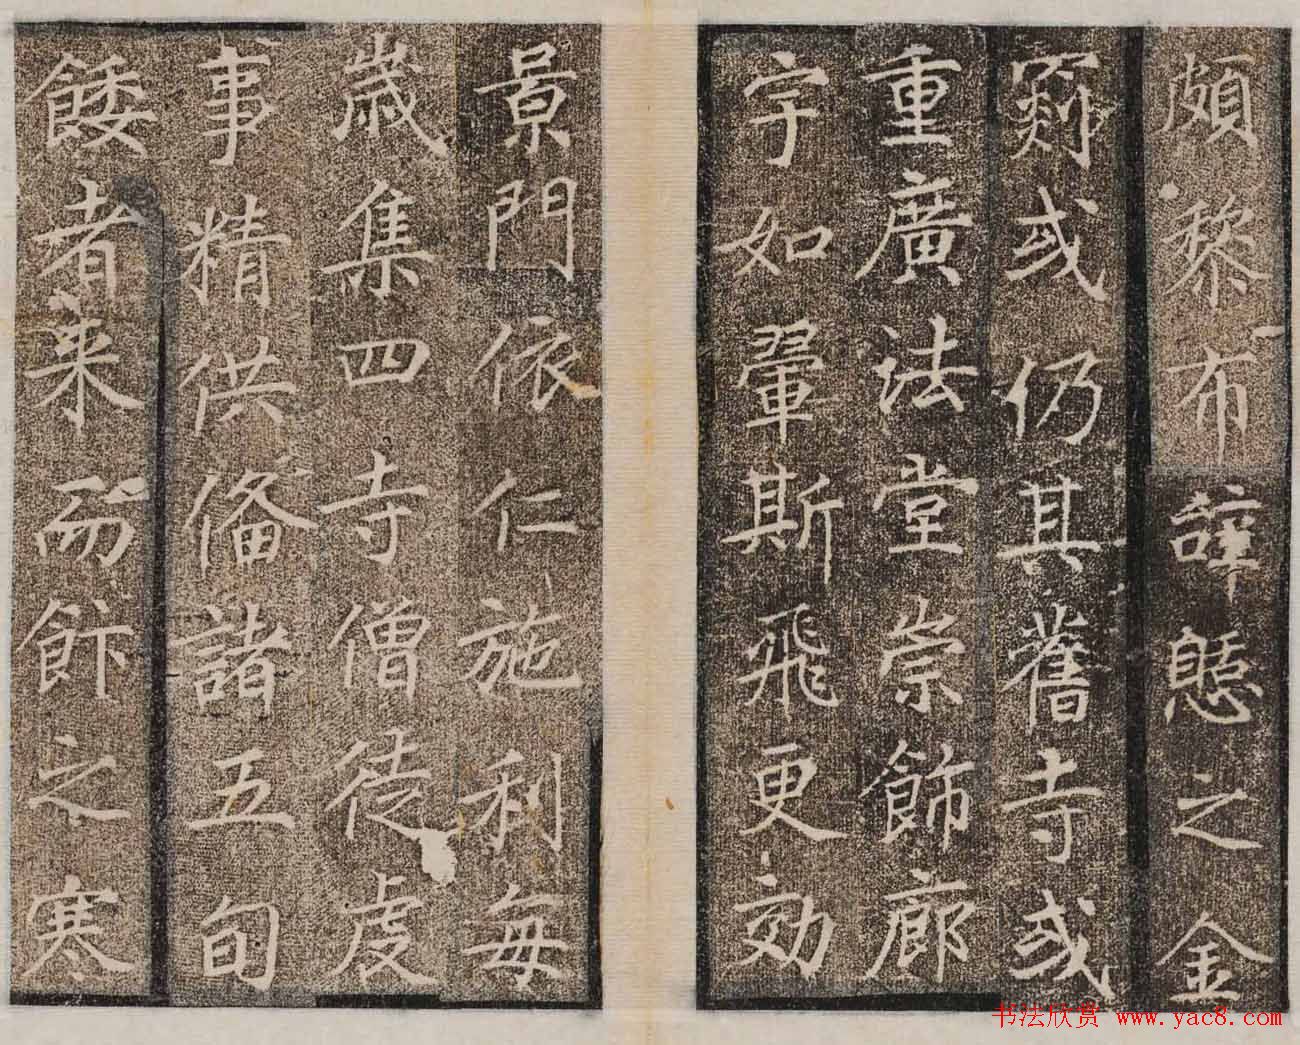 頗黎布諱懸之金
或仍其舊寺或
重廣法堂崇飾廊
宇如翬斯飛更効
景門依仁施利每
歲集四寺僧徒虔
事精供備諸五旬
餧者来而飰之寒
书法欣赏 www.yac8.com